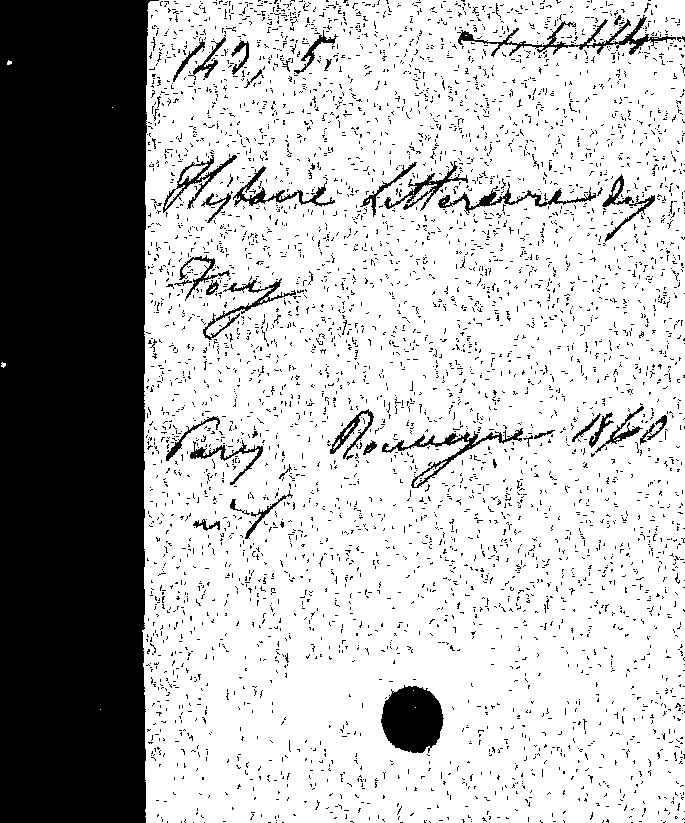 143, 5.
Histoire Littéraire des
Fous
Paris Rouveyre 1860